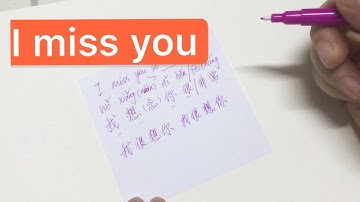 I miss you
I miss you so
wǒ xiǎng (niàn) nǐ hěn/fēicháng
我 想 (念) 你 很/非常
我很想你 我很想你